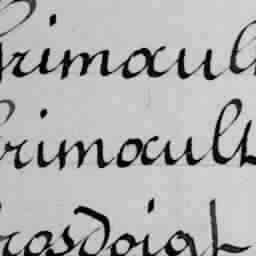 Grimoul
Grimoult
Grosdoigt